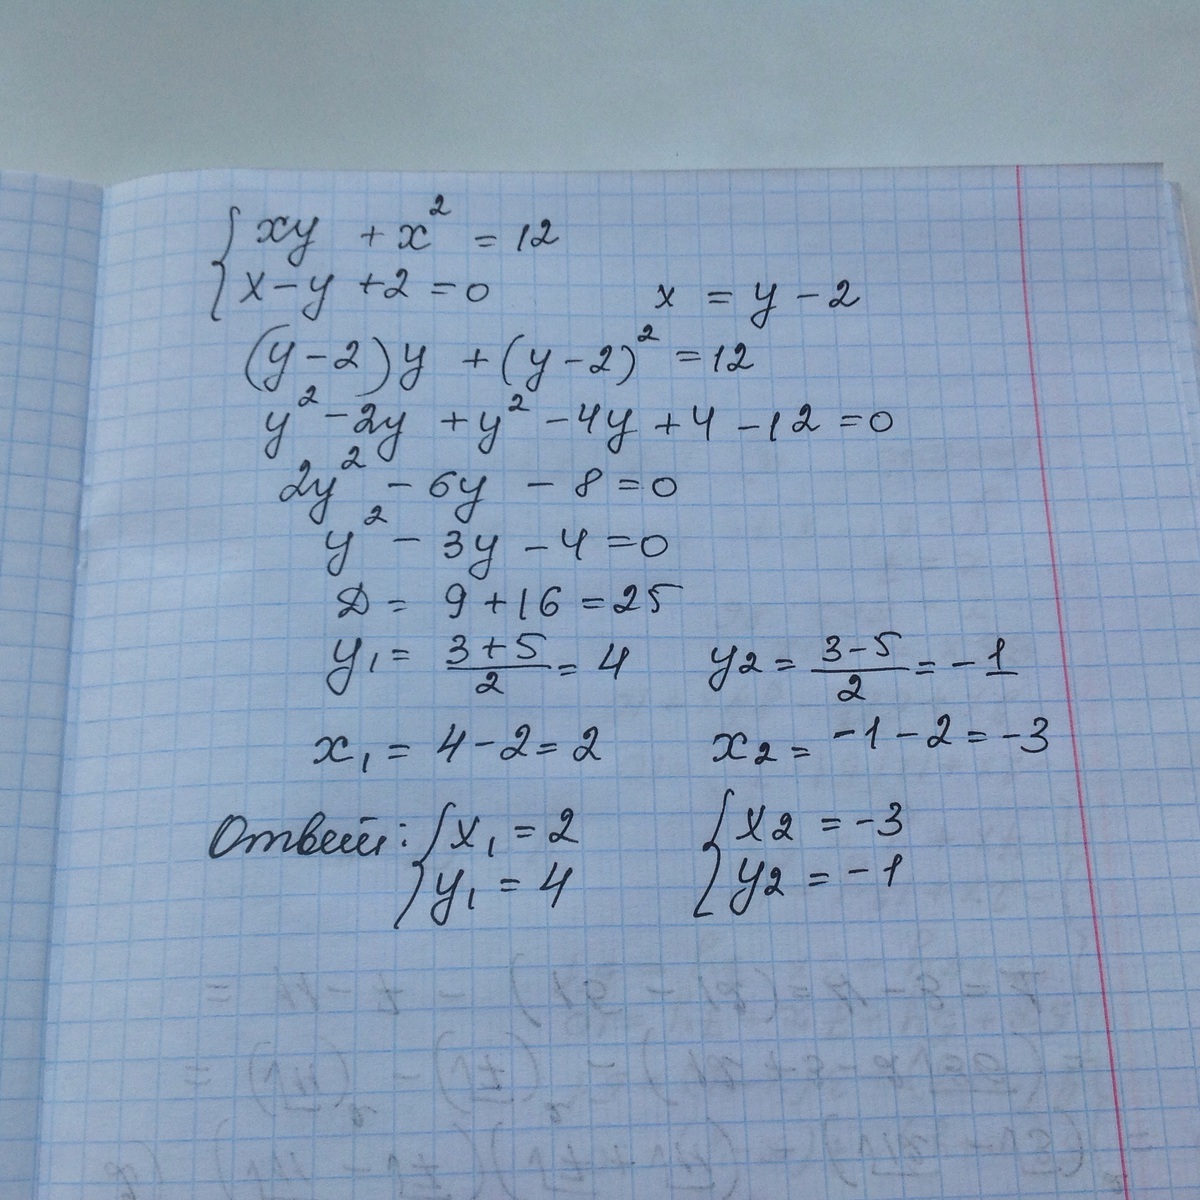 { xy + x² = 12
x - y + 2 = 0     x = y - 2
(y - 2)y + (y - 2)² = 12
y² - 2y + y² - 4y + 4 - 12 = 0
2y² - 6y - 8 = 0
y² - 3y - 4 = 0
D = 9 + 16 = 25
y₁ = (3+5)/2 = 4     y₂ = (3-5)/2 = -1
x₁ = 4 - 2 = 2     x₂ = -1 - 2 = -3
Ответ: { x₁ = 2     { x₂ = -3
y₁ = 4     y₂ = -1